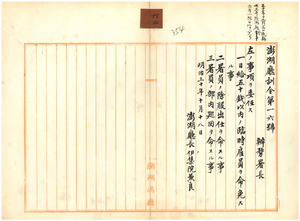 354
澎湖廳訓令第一六號
辨務署長
左ノ事項ヲ委任ス
一日給五十錢以内ノ臨時雇員ヲ命免スル事
二署員ノ除服出仕ヲ命スル事
三署員ノ部内巡回ヲ命スル事
明治三十年十月十八日
澎湖廳長伊集院兼良